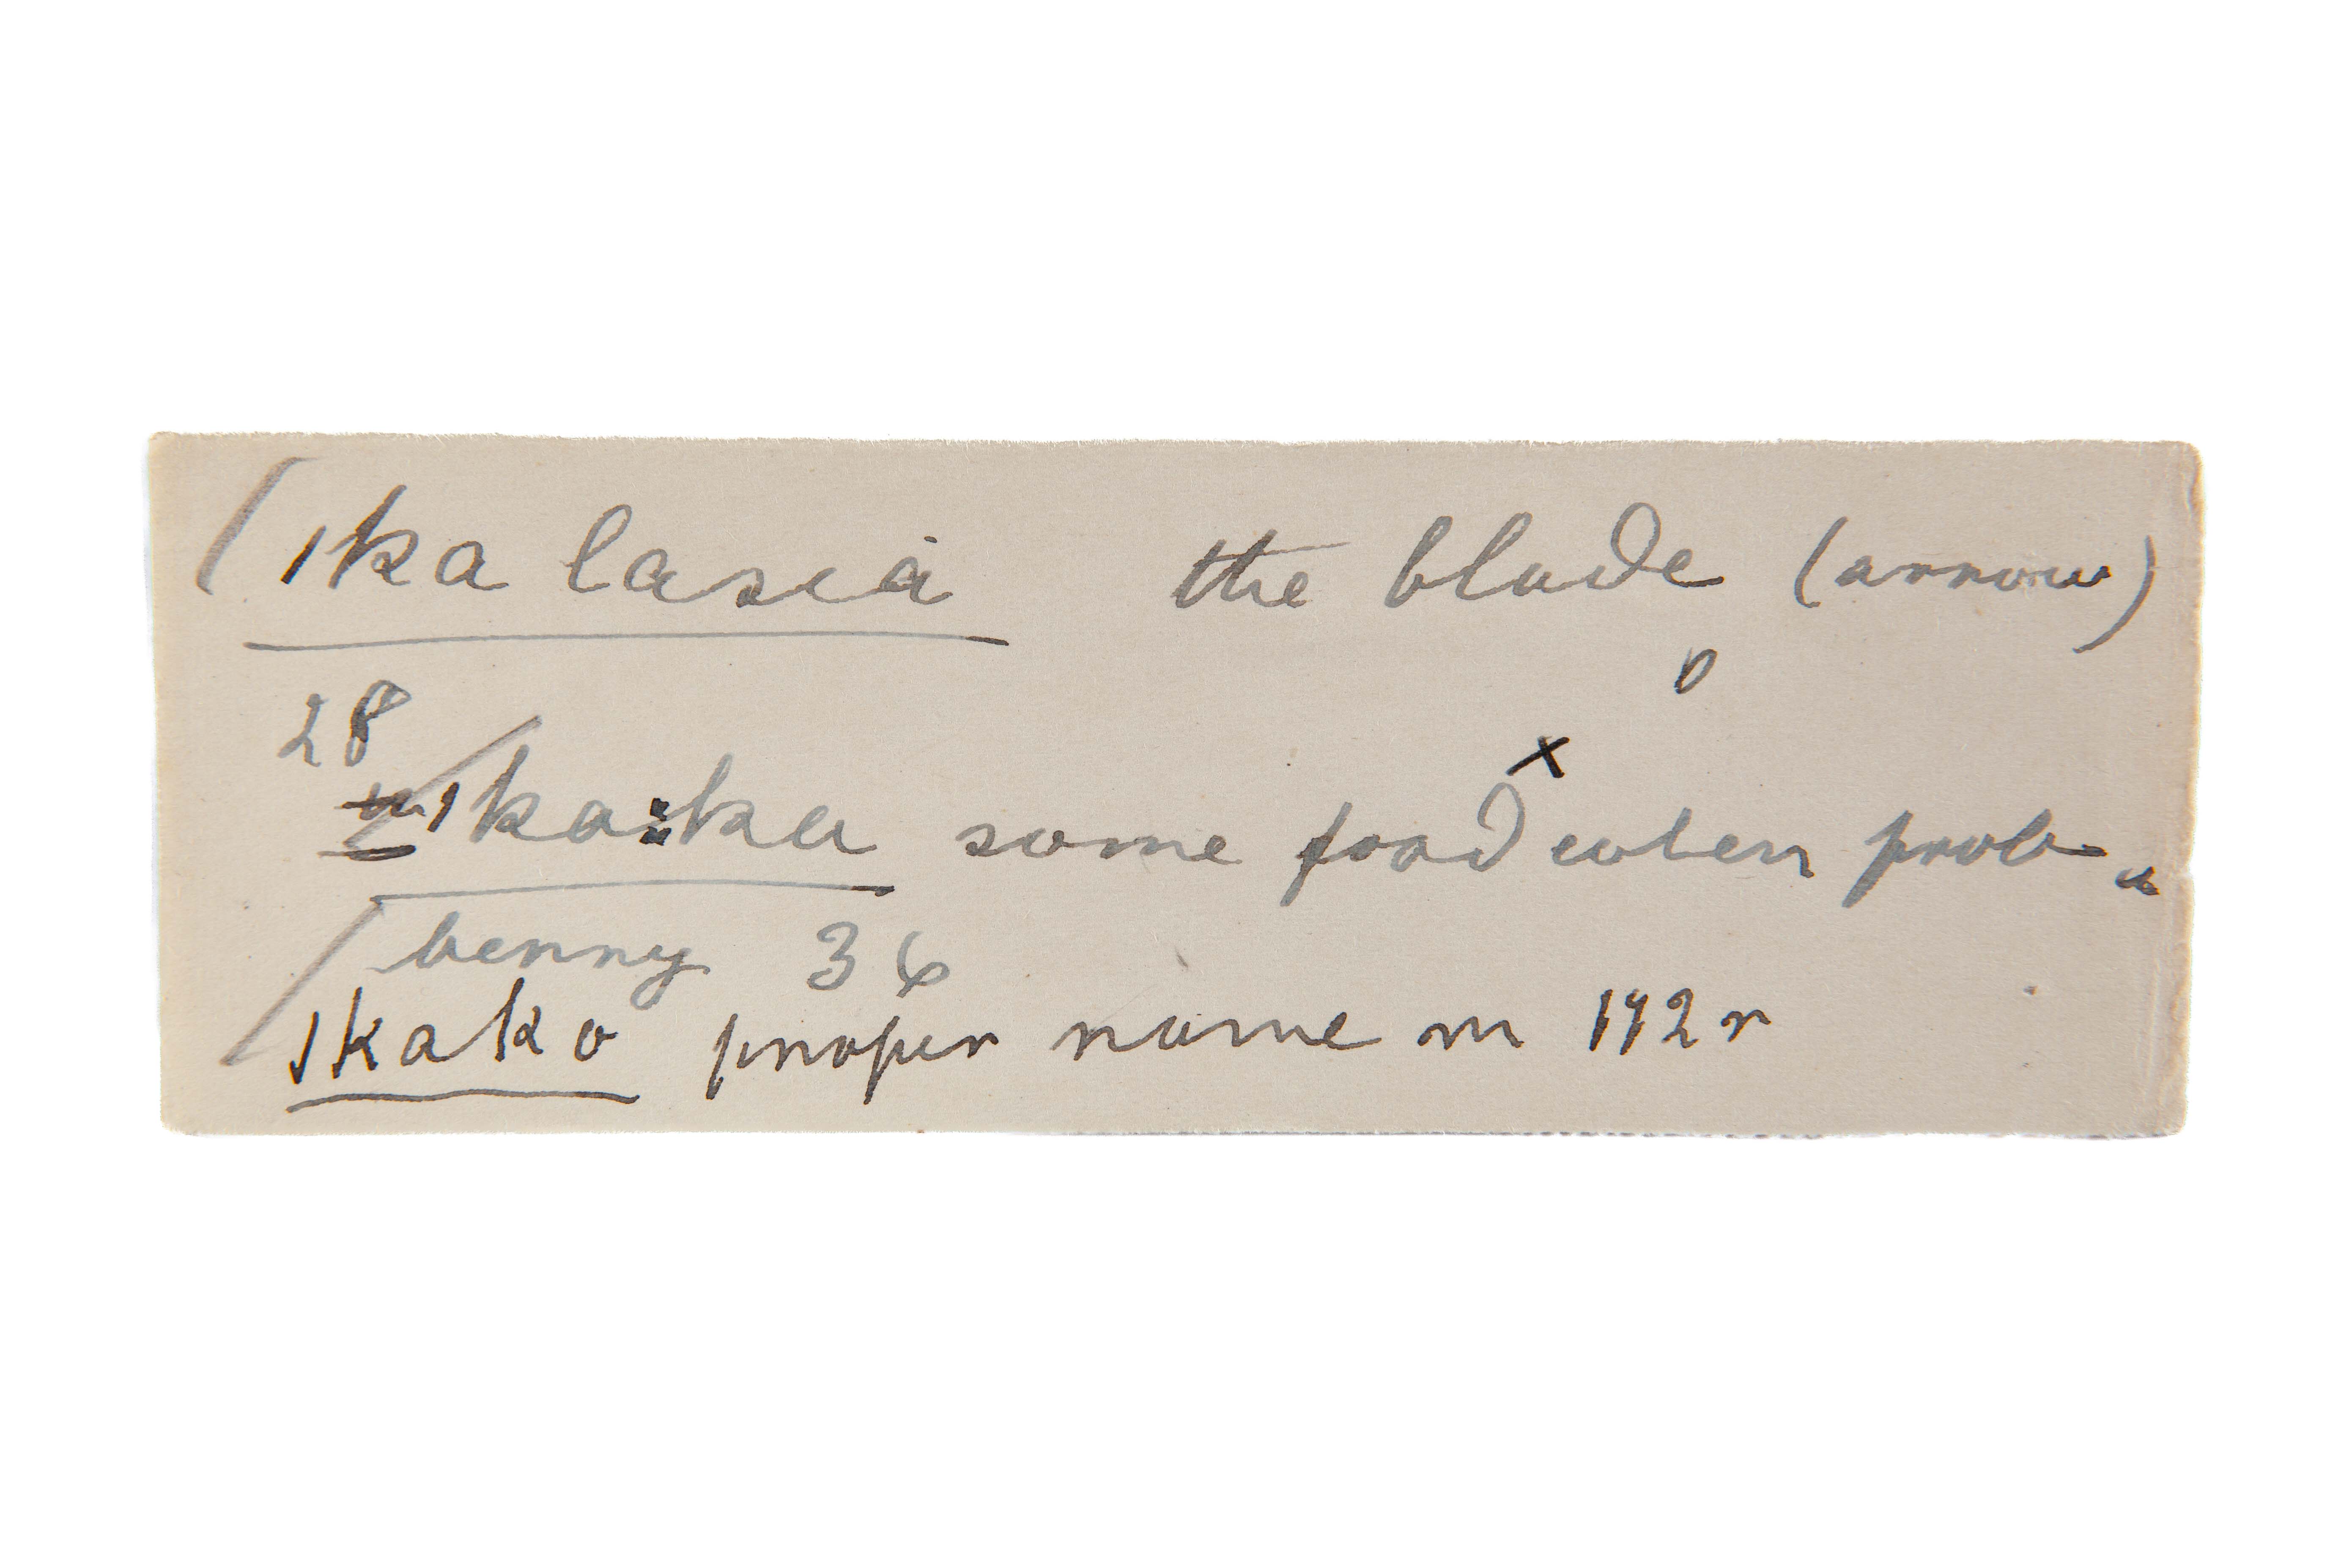 ıka lasıȧ the blade (arrow)
28
ıka:ka some food eaten prob
benny 36
ıkako proper name m 192 r